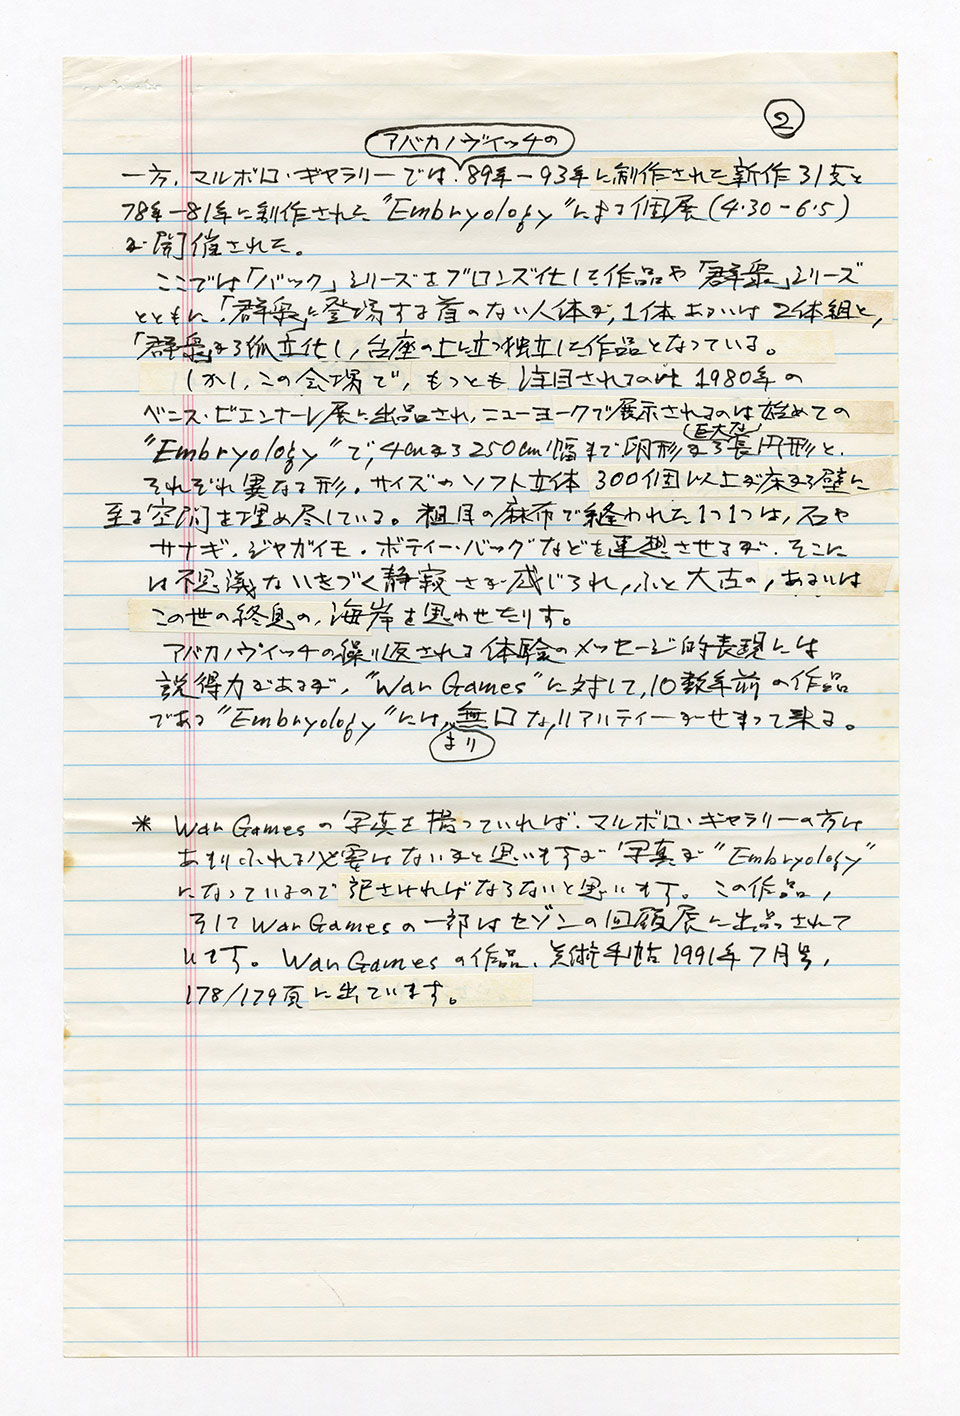 ②
アバカノヴィッチの
一方、マルボロ・ギャラリーでは、89年－93年に制作された新作31支と
78年－81年に制作された"Embryology"による個展(4・30－6・5)
が開催された。
ここでは「バック」シリーズをブロンズ化した作品や「群衆」シリーズ
とともに、「群衆」に登場する首のない人体が、1体あるいは2体組と、
「群衆」から孤立化し、台座の上に立つ独立した作品となっている。
しかし、この会場で、もっとも注目されるのは1980年の
ベニス・ビエンナーレ展に出品され、ニューヨークで展示されるのは始めての
"Embryology"で、4cmから250cm幅まで卵形から長円形と、
(巨大な)
それぞれ異なる形。サイズのソフト立体300個以上が床から壁に
至る空間を埋め尽している。粗目の麻布で縫われた1つ1つは、石や
サナギ、ジャガイモ・ボディー・バッグなどを連想させるが、そこに
は不思議ないきづく静寂さが感じられ、ふと太古の、あるいは
この世の終息の、海岸を思わせたりする。
アバカノヴィッチの繰り返される体験のメッセージ的表現には
説得力があるが、"War Games"に対して、10数年前の作品
である"Embryology"には、無口なリアリティーがせまって来る。
より
* War Gamesの写真を撮っていれば、マルボロ・ギャラリーの方は
あまりふれる必要はないかと思いますが写真が"Embryology"
になっているので記さなければならないと思います。この作品、
そしてWar Gamesの一部はセゾンの回顧展に出品されて
います。War Gamesの作品、美術手帖1991年7月号、
178/179頁に出ています。